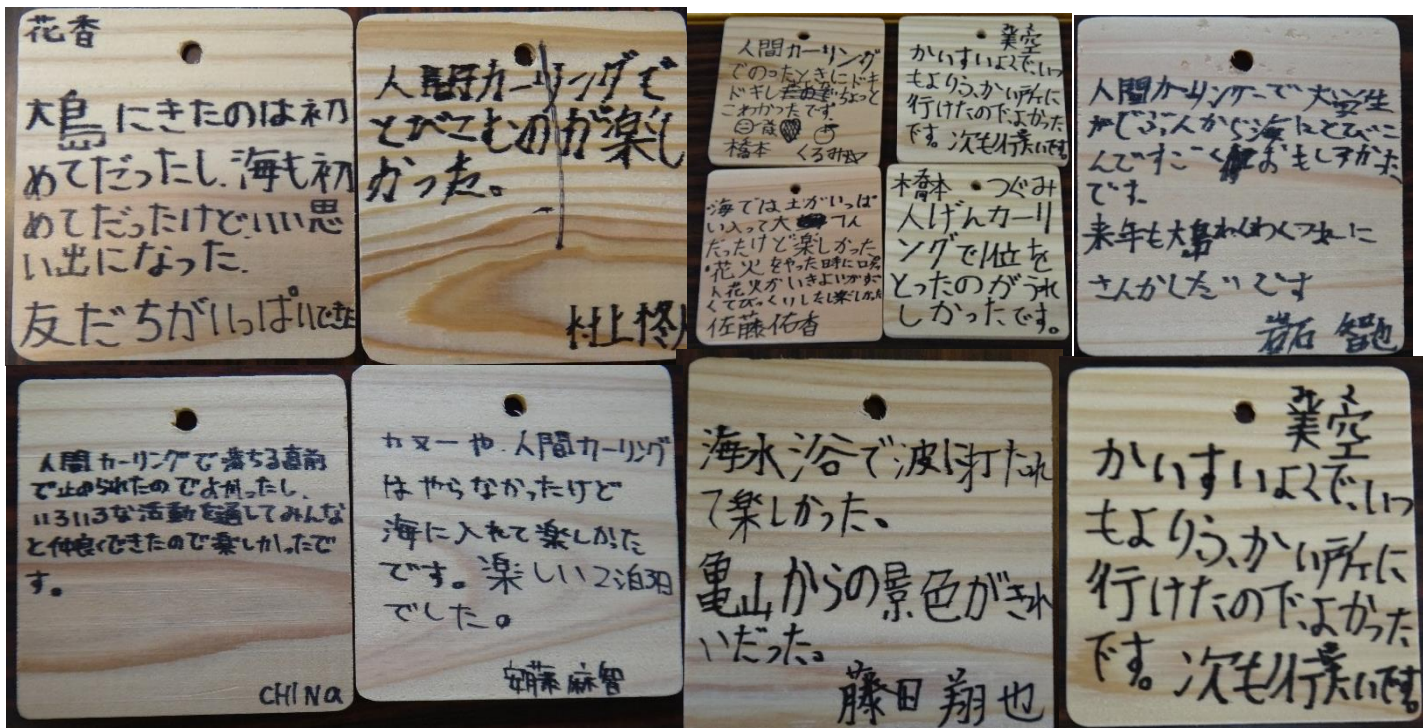 花香
大島にきたのは初
めてだったし、海も初
めてだったけど、いい思
い出になった。
友だちがいっぱいできた
人間カーリングで
とびこむのが楽し
かった。
村上柊
人間カーリング
でのったときにドキ
ドキしちょっと
こわかったです。
橋本 くるみ
美空
かいすいよくで、いつ
もよりふかい所に
行けたので、よかった
です。次も行きたいです。
海では土がいっぱ
い入って大へん
だったけど楽しかった。
花火をやった時に
花火がいきよいがすご
くてびっくりしたし楽しかった
佐藤佑香
橋本 つぐみ
人げんカーリ
ングで1位を
とったのがうれ
しかったです。
人間カーリングで大学生
がじぶんから海にとびこ
んですごくおもしろかった
です。
来年も大島わくわくつあーに
さんかしたいです
岩石 智也
人間カーリングで落ちる直前
で止められたのでよかったし、
いろいろな活動を通してみんな
と仲良くできたので楽しかったで
す。
CHINa
カヌーや、人間カーリング
はやらなかったけど
海に入れて楽しかった
です。楽しい2泊3日
でした。
安藤麻智
海水浴で波に打たれ
て楽しかった。
亀山からの景色がきれ
いだった。
藤田翔也
美空
かいすいよくで、いつ
もよりふかい所に
行けたので、よかった
です。次も行きたいです。